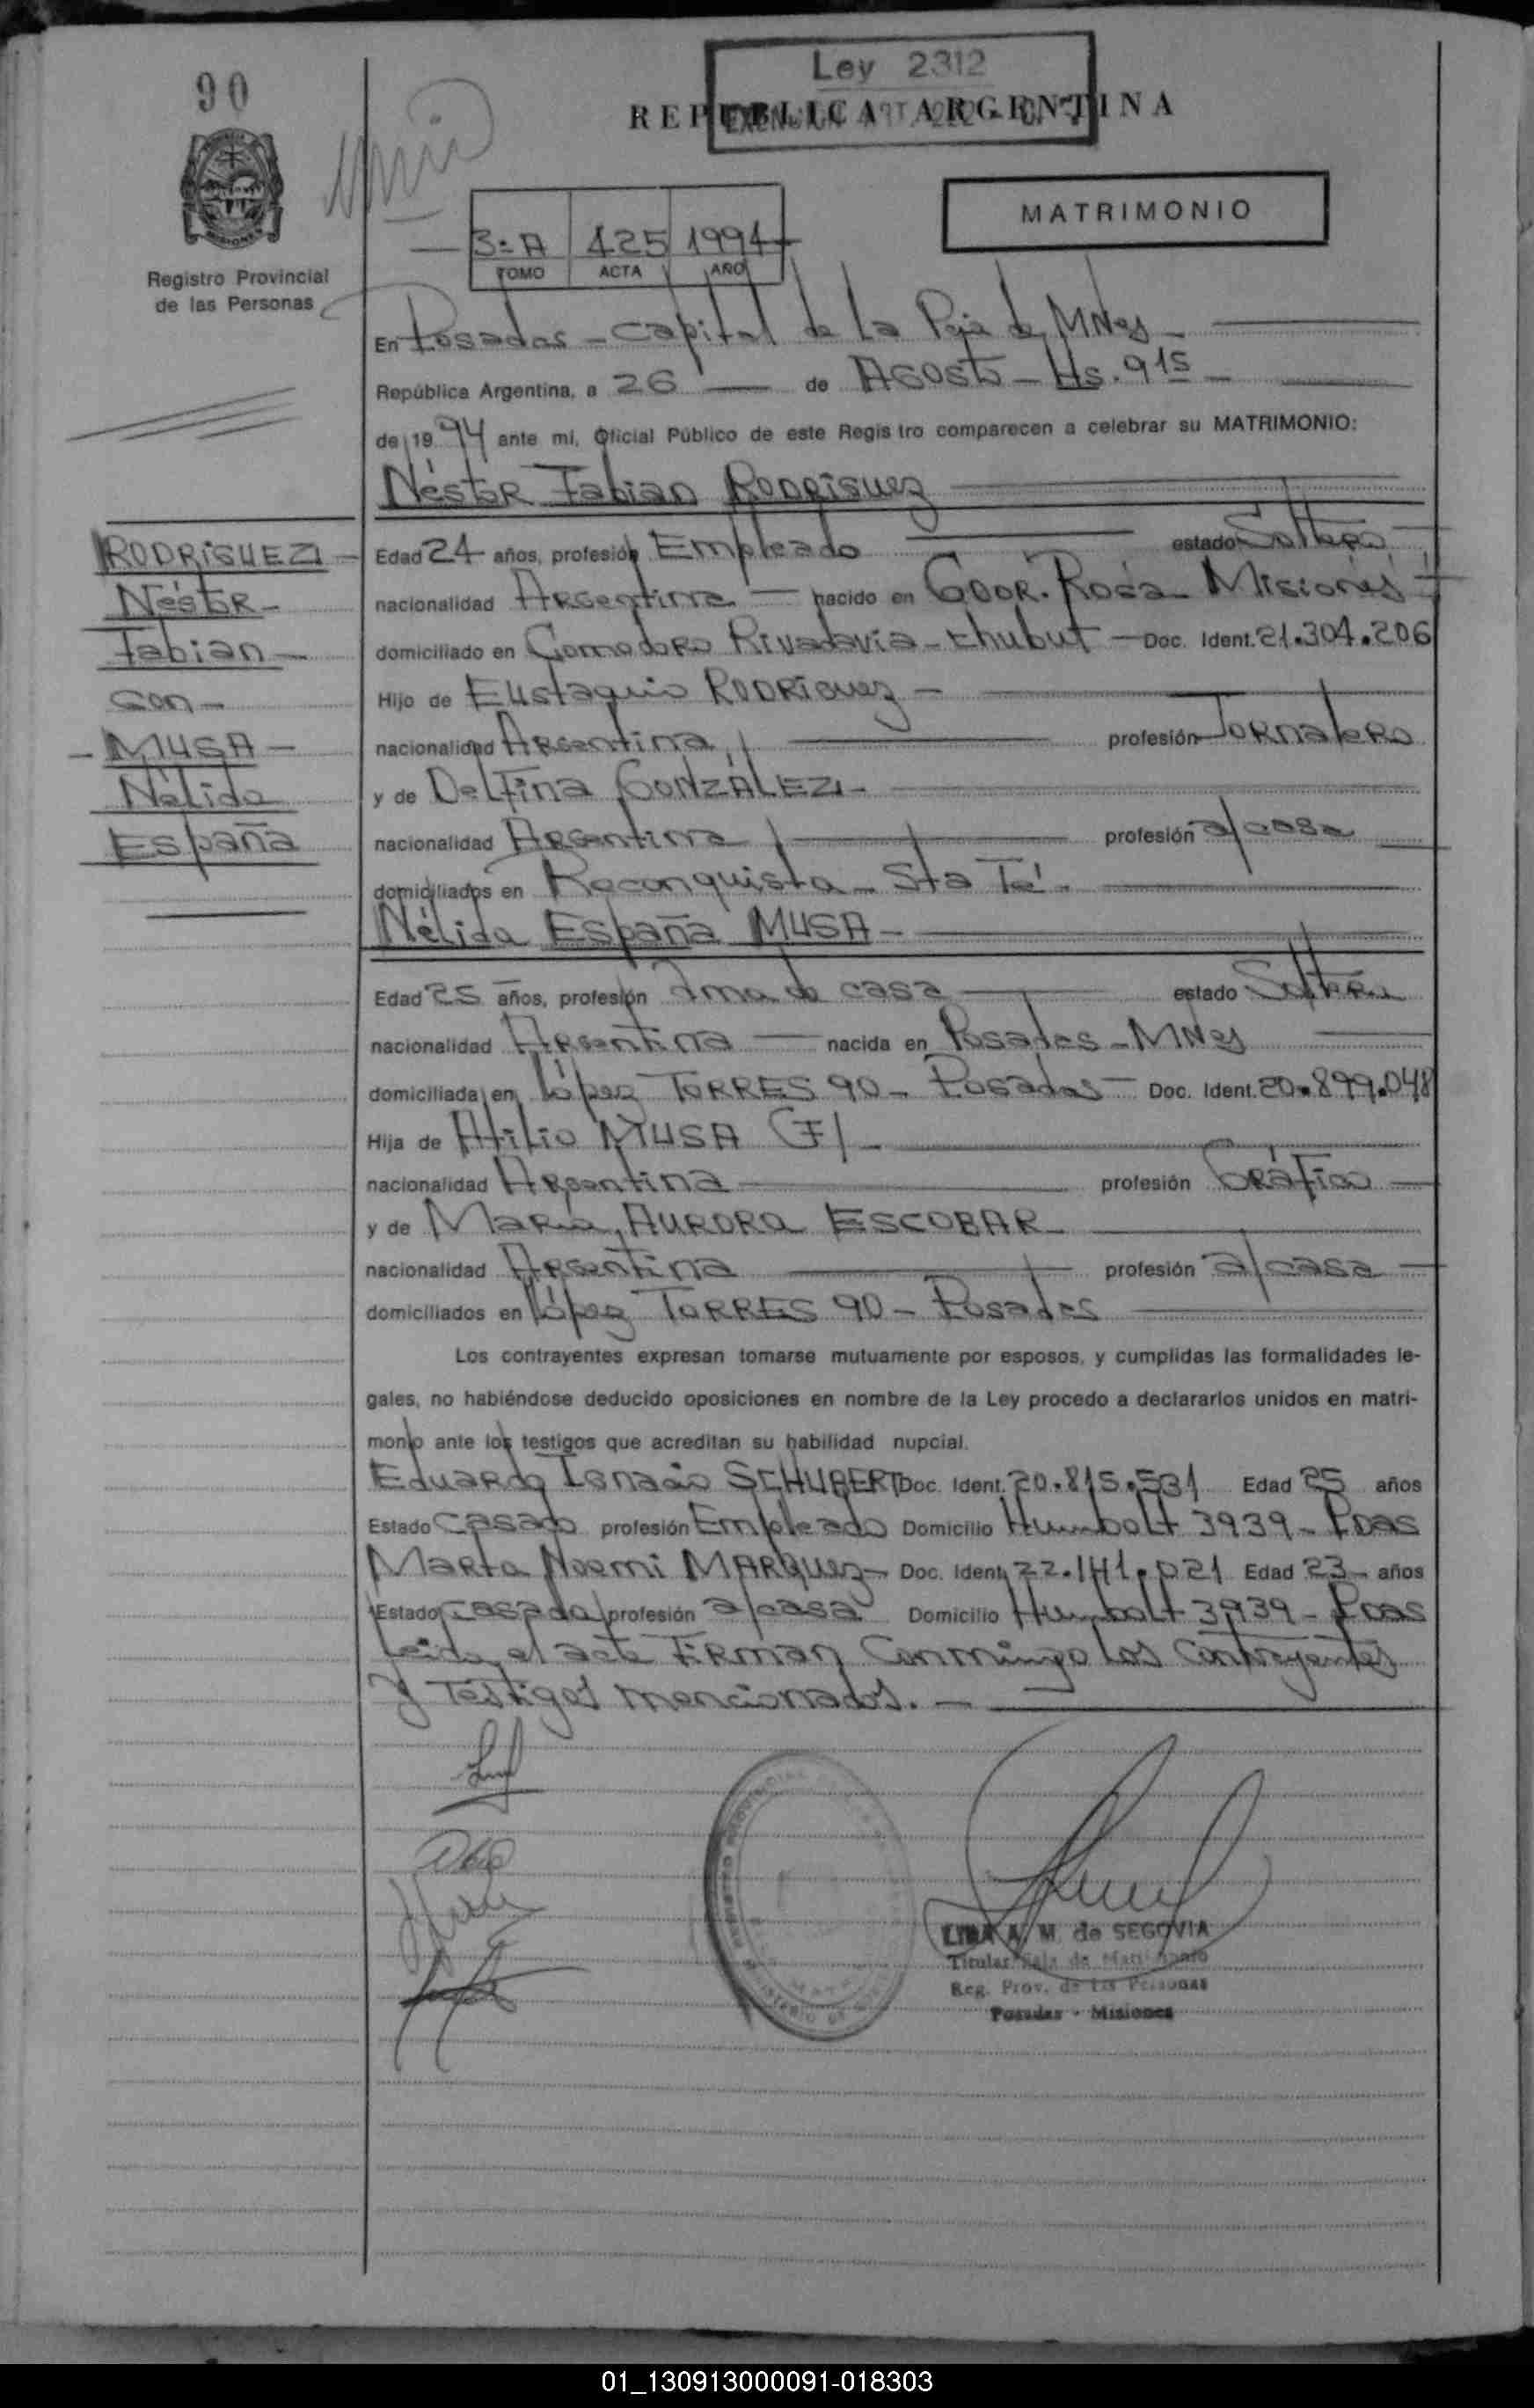 90
Ley 2312
REPUBLICA ARGENTINA
MATRIMONIO
3= A 425 1994
TOMO ACTA AÑO
Registro Provincial
de las Personas
En Posadas - Capital de La Pcia de MNes
República Argentina, a 26 de AGOSTO - Hs. 9 15
de 19 94 ante mi, Oficial Público de este Registro comparecen a celebrar su MATRIMONIO:
Néstor Fabian RODRIGUEZ
RODRIGUEZ
Néstor
Fabian
con
MUSA
Nélida
España
Edad 24 años, profesión Empleado estado Soltero
nacionalidad Argentina nacido en GDOR. Roca - Misiones
domiciliado en Comodoro Rivadavia - Chubut - Doc. Ident. 21.304.206
Hijo de Eustaquio RODRIGUEZ
nacionalidad Argentina profesión Jornalero
y de Delfina GONZÁLEZ
nacionalidad Argentina profesión a/casa
domiciliados en Reconquista - Sta Fé.
Nélida España MUSA
Edad 25 años, profesión Ama de casa estado Soltera
nacionalidad Argentina nacida en Posadas - MNes
domiciliada en López TORRES 90 - Posadas - Doc. Ident. 20.899.048
Hija de Atilio MUSA (F)
nacionalidad Argentina profesión Gráfico
y de María AURORA ESCOBAR
nacionalidad Argentina profesión a/casa
domiciliados en López TORRES 90 - Posadas
Los contrayentes expresan tomarse mutuamente por esposos, y cumplidas las formalidades le-
gales, no habiéndose deducido oposiciones en nombre de la Ley procedo a declararlos unidos en matri-
monio ante los testigos que acreditan su habilidad nupcial.
Eduardo Ignacio SCHUBERT Doc. Ident. 20.815.531 Edad 25 años
Estado Casado profesión Empleado Domicilio Humbolt 3939 - Pdas
Marta Noemi MARQUEZ - Doc. Ident. 22.141.021 Edad 23 años
Estado Casada profesión a/casa Domicilio Humbolt 3939 - Pdas
Leida el acta FIRMAN Conmingo los Contrayentes
y Testigos mencionados. -
LIDIA A. M. de SEGOVIA
Titular Sala de Matrimonio
Reg. Prov. de las Personas
Posadas - Misiones
01_130913000091-018303